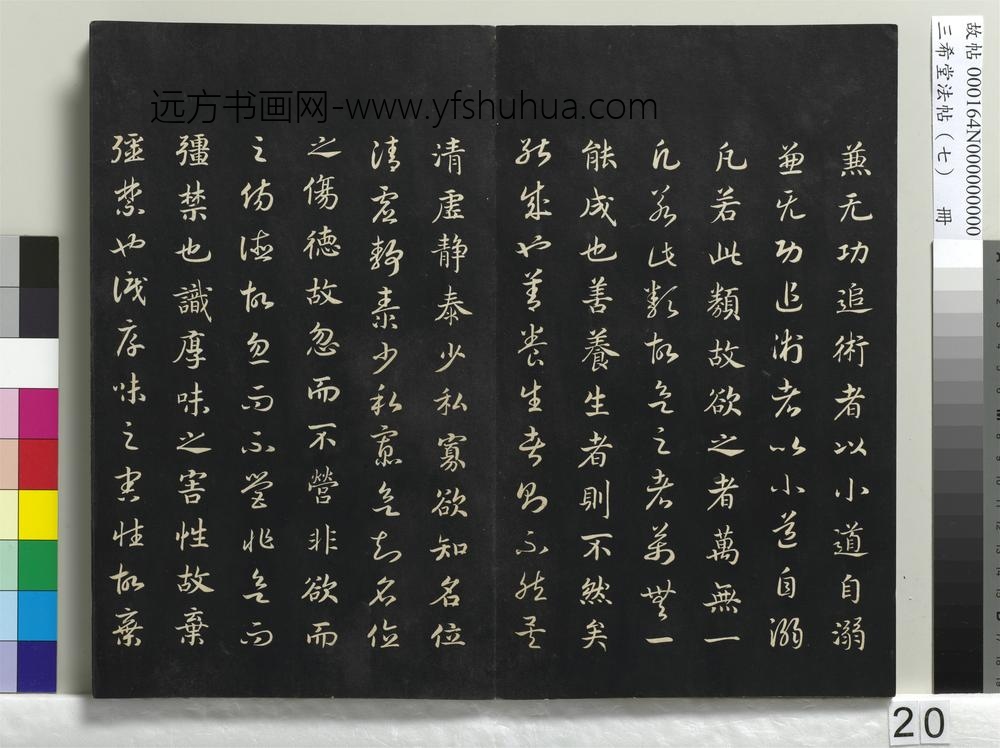 远方书画网-www.yfshuhua.com
兼无功追術者以小道自溺
兼无功追術者以小道自溺
凡若此類故欲之者萬無一
凡若此類故欲之者萬無一
能成也善養生者則不然矣
能成也善養生者則不然矣
清虛静泰少私寡欲知名位
清虛静泰少私寡欲知名位
之傷德故忽而不營非欲而
之傷德故忽而不營非欲而
彊禁也識厚味之害性故棄
彊禁也識厚味之害性故棄
故帖 000164N000000000
三希堂法帖(七) 冊
20